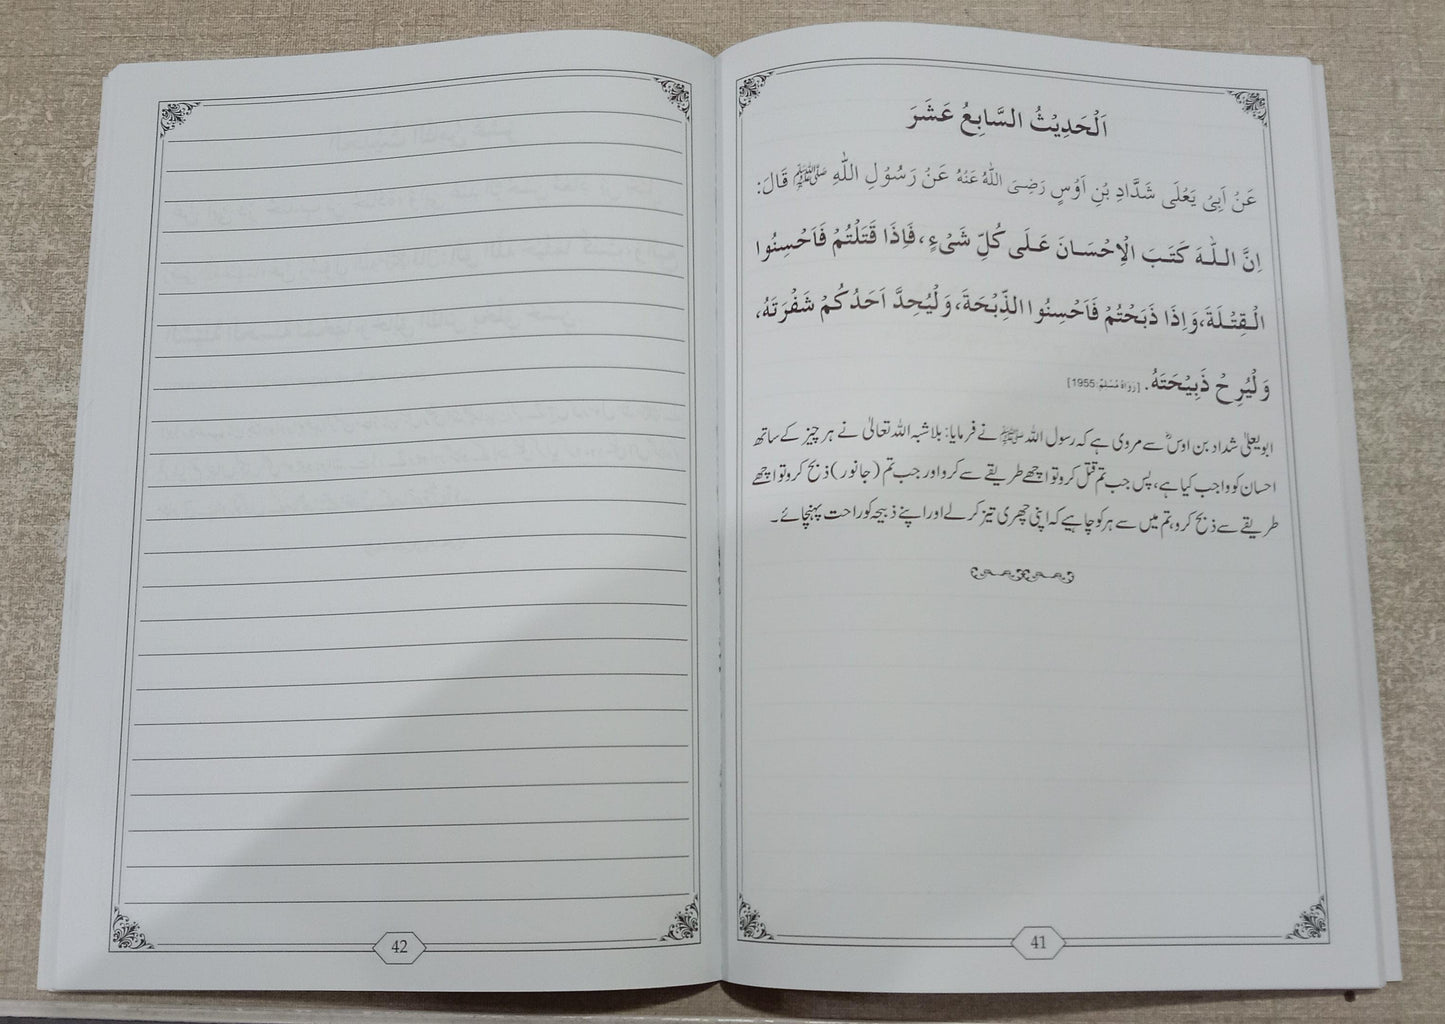 اَلْحَدِيْثُ السَّابِعُ عَشَرَ
عَنْ اَبِيْ يَعْلَى شَدَّادِ بْنِ اَوْسٍ رَضِيَ اللّٰهُ عَنْهُ عَنْ رَسُوْلِ اللّٰهِ ﷺ قَالَ:
اِنَّ اللّٰهَ كَتَبَ الْاِحْسَانَ عَلَى كُلِّ شَىْءٍ، فَاِذَا قَتَلْتُمْ فَاَحْسِنُوا
الْقِتْلَةَ، وَاِذَا ذَبَحْتُمْ فَاَحْسِنُوا الذِّبْحَةَ، وَلْيُحِدَّ اَحَدُكُمْ شَفْرَتَهُ،
وَلْيُرِحْ ذَبِيْحَتَهُ. [رَوَاهُ مُسْلِمْ:1955]
ابویعلیٰ شداد بن اوسؓ سے مروی ہے کہ رسول اللہ ﷺ نے فرمایا: بلاشبہ اللہ تعالیٰ نے ہر چیز کے ساتھ
احسان کو واجب کیا ہے، پس جب تم قتل کرو تو اچھے طریقے سے کرو اور جب تم (جانور) ذبح کرو تو اچھے
طریقے سے ذبح کرو، تم میں سے ہر کو چاہیے کہ اپنی چھری تیز کر لے اور اپنے ذبیحہ کو راحت پہنچائے۔
41
42